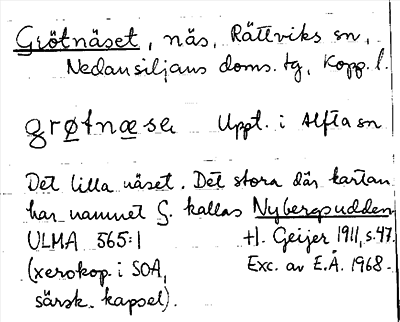 Grötnäset, näs, Rättviks sn,
Nedansiljans doms. tg, Kopp. l.
grøtnæsə Uppt. i Alfta sn
Det lilla näset. Det stora där kartan
har namnet G. kallas Nybergsudden
ULMA 565:1 H. Geijer 1911, s. 47.
(xerokop. i SOA, Exc. av E.Å. 1968.
särsk. kapsel).